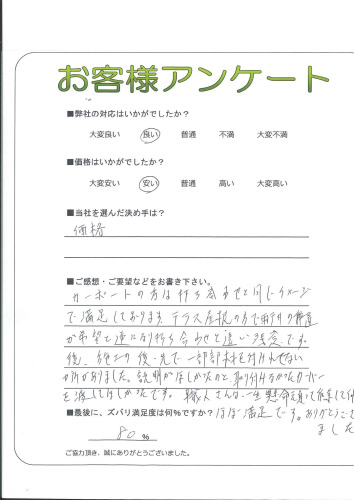 お客様アンケート
■弊社の対応はいかがでしたか?
大変良い 良い 普通 不満 大変不満
■価格はいかがでしたか?
大変安い 安い 普通 高い 大変高い
■当社を選んだ決め手は?
価格
■ご感想・ご要望などをお書き下さい。
カーポートの方は打ち合わせと同じイメージ
で満足しております。テラス屋根の方で雨戸の構造
が希望と逆になり打ち合わせと違い残念です。
後、施工の後、先で一部部材を付けれない
か所がありました。説明がほしかったのと、取り付けなかったカバー
を渡してほしかったです。職人さんは、一生懸命頑って作業して
ほぼ満足です。ありがとうござ
ました
■最後に、ズバリ満足度は何%ですか?
80 %
ご協力頂き、誠にありがとうございました。